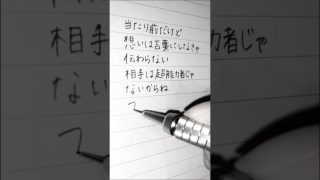 当たり前だけど
想いは言葉にしなきゃ
伝わらない
相手は超能力者じゃ
ないからね